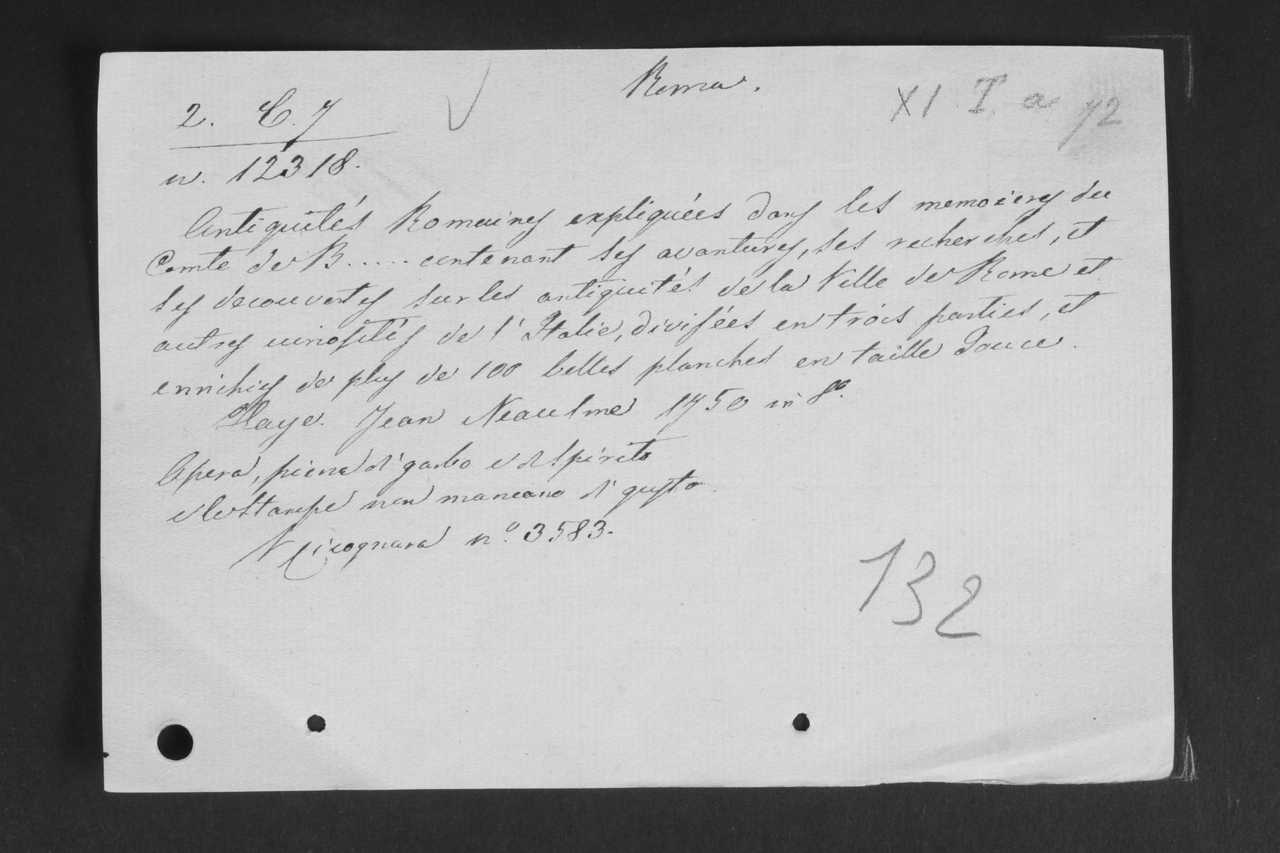 Roma.
XI I a 72
2. C. 7
n. 12318.
Antiquités Romaines expliquées dans les memoires du
Comte de B..... contenant ses avantures, ses recherches, et
ses decouvertes sur les antiquités de la Ville de Rome et
autres curiosités de l'Italie, divisées en trois parties, et
enrichies de plus de 100 belles planches en taille douce.
Haye. Jean Neaulme 1750 in 8º.
Opera, piena di garbo e di spirito
e le stampe non mancano di gusto.
V Cicognara nº. 3583.
132